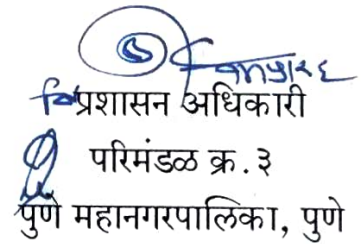 प्रशासन अधिकारी
परिमंडळ क्र. ३
पुणे महानगरपालिका, पुणे